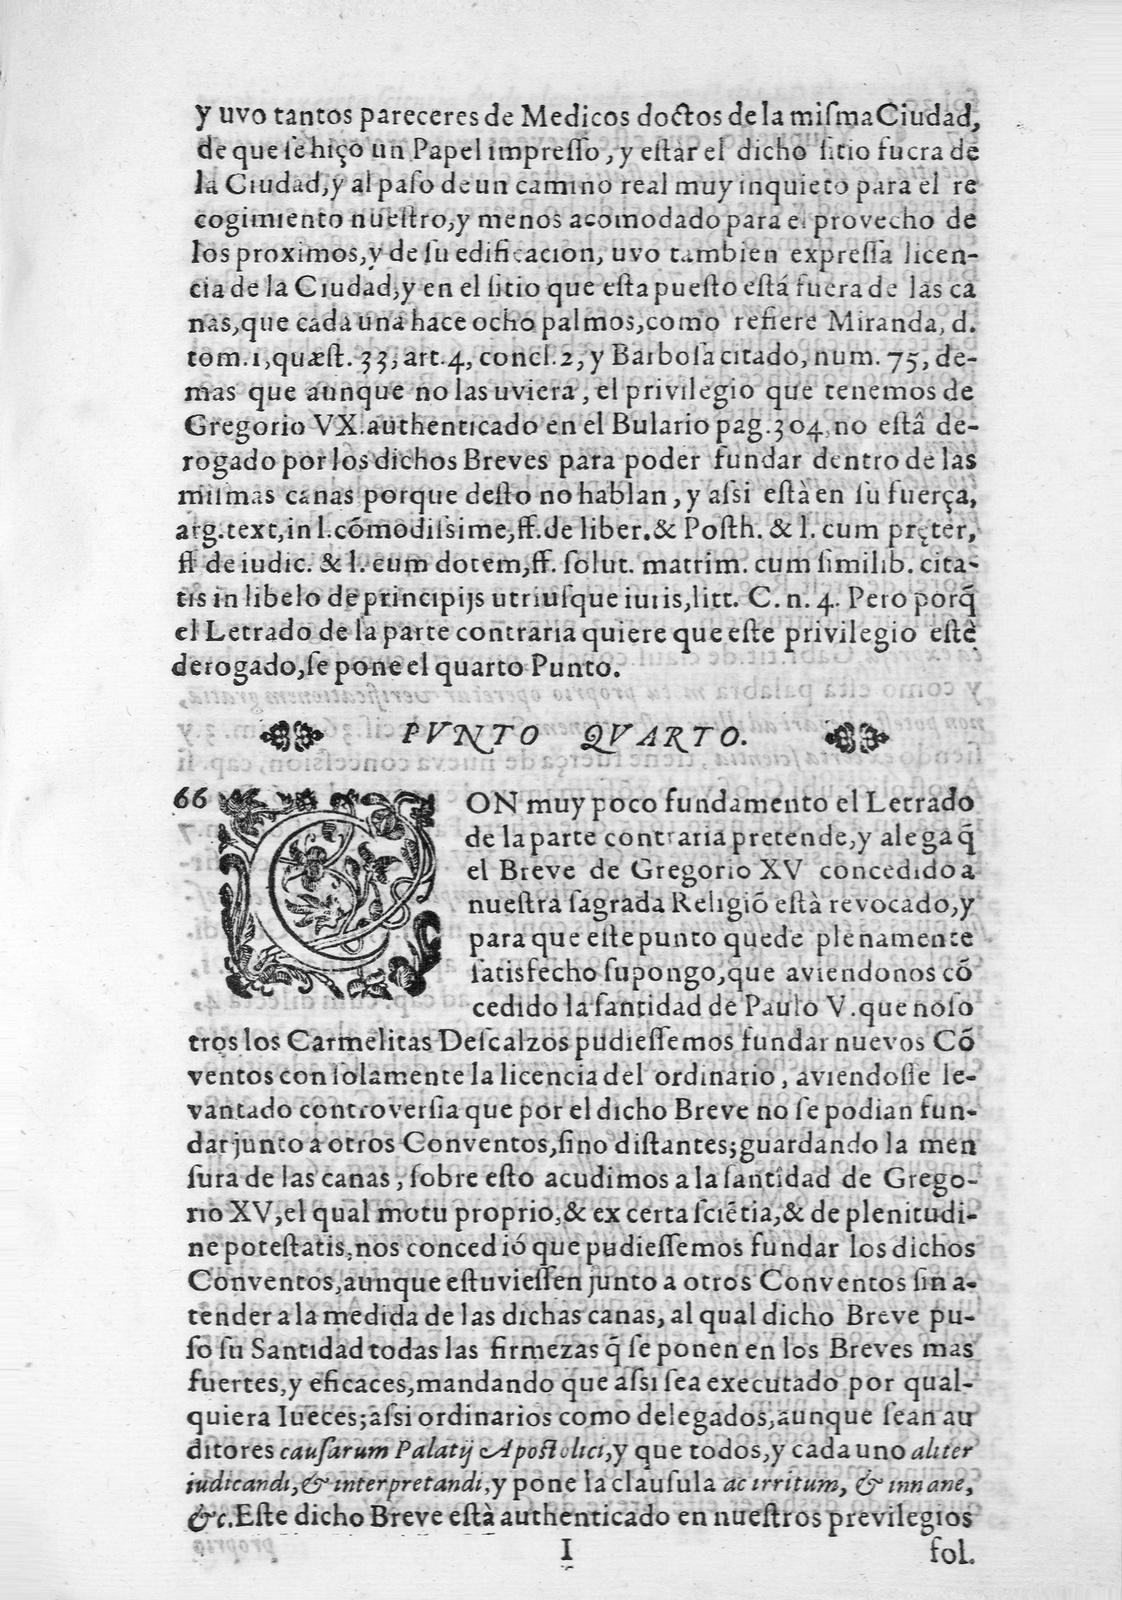 y uvo tantos pareceres de Medicos doctos de la misma Ciudad,
de que se hiço un Papel impresso, y estar el dicho sitio fuera de
la Ciudad, y al paso de un camino real muy inquieto para el re
cogimiento nuestro, y menos acomodado para el provecho de
los proximos, y de su edificacion, uvo tambien expressa licen-
cia de la Ciudad, y en el sitio que esta puesto está fuera de las ca
nas, que cada una hace ocho palmos, como refiere Miranda, d.
tom. 1, quæst. 33, art. 4, concl. 2, y Barbosa citado, num. 75, de-
mas que aunque no las uviera, el privilegio que tenemos de
Gregorio VX. authenticado en el Bulario pag. 304, no està de-
rogado por los dichos Breves para poder fundar dentro de las
mismas canas porque desto no hablan, y assi està en su fuerça,
arg. text, in l. cõmodissime, ff. de liber. & Posth. & l. cum pręter,
ff. de iudic. & l. eum dotem, ff. solut. matrim. cum similib. cita-
tis in libelo de principijs utriusque iuris, litt. C. n. 4. Pero porq̃
el Letrado de la parte contraria quiere que este privilegio estè
derogado, se pone el quarto Punto.
PVNTO QVARTO.
66 CON muy poco fundamento el Letrado
de la parte contraria pretende, y alega q̃
el Breve de Gregorio XV concedido a
nuestra sagrada Religiõ està revocado, y
para que este punto quede plenamente
satisfecho supongo, que aviendonos cõ
cedido la santidad de Paulo V. que noso
tros los Carmelitas Descalzos pudiessemos fundar nuevos Cõ
ventos con solamente la licencia del ordinario, aviendosse le-
vantado controversia que por el dicho Breve no se podian fun-
dar junto a otros Conventos, sino distantes; guardando la men
sura de las canas, sobre esto acudimos a la santidad de Grego-
rio XV, el qual motu proprio, & ex certa sciẽtia, & de plenitudi-
ne potestatis, nos concedió que pudiessemos fundar los dichos
Conventos, aunque estuviessen junto a otros Conventos sin a-
tender a la medida de las dichas canas, al qual dicho Breve pu-
so su Santidad todas las firmezas q̃ se ponen en los Breves mas
fuertes, y eficaces, mandando que assi sea executado por qual-
quiera Iueces; assi ordinarios como delegados, aunque sean au
ditores causarum Palatij Apostolici, y que todos, y cada uno aliter
iudicandi, & interpretandi, y pone la clausula ac irritum, & innane,
&c. Este dicho Breve està authenticado en nuestros previlegios
I fol.